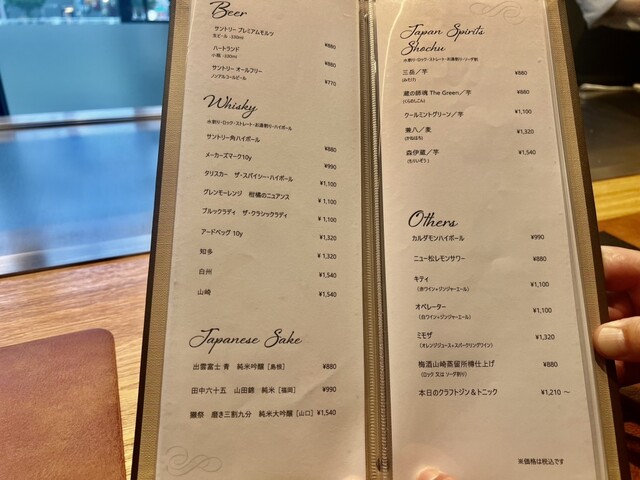 Beer
サントリー プレミアムモルツ
生ビール ・330ml ¥880
ハートランド
小瓶 ・330ml ¥880
サントリー オールフリー
ノンアルコールビール ¥770
Whisky
※水割り・ロック・ストレート・お湯割り・ハイボール
サントリー角ハイボール ¥880
メーカーズマーク10y ¥990
タリスカー ザ・スパイシー・ハイボール ¥1,100
グレンモーレンジ 柑橘のニュアンス ¥1,100
ブルックラディ ザ・クラシックラディ ¥1,100
アードベッグ 10y ¥1,320
知多 ¥1,320
白州 ¥1,540
山崎 ¥1,540
Japanese Sake
出雲富士 青 純米吟醸 [島根] ¥880
田中六十五 山田錦 純米 [福岡] ¥990
獺祭 磨き三割九分 純米大吟醸 [山口] ¥1,540
Japan Spirits
Shochu
※水割り・ロック・ストレート・お湯割り・ソーダ割
三岳／芋 ¥880
(みたけ)
蔵の師魂 The Green／芋 ¥880
(くらのしこん)
クールミントグリーン／芋 ¥1,100
兼八／麦 ¥1,320
(かねはち)
森伊蔵／芋 ¥1,540
(もりいぞう)
Others
カルダモンハイボール ¥990
ニュー松レモンサワー ¥880
キティ ¥1,100
（赤ワイン+ジンジャーエール）
オペレーター ¥1,100
（白ワイン+ジンジャーエール）
ミモザ ¥1,320
（オレンジジュース+スパークリングワイン）
梅酒山崎蒸留所樽仕上げ ¥880
（ロック 又は ソーダ割り）
本日のクラフトジン&トニック ¥1,210 ～
※価格は税込です